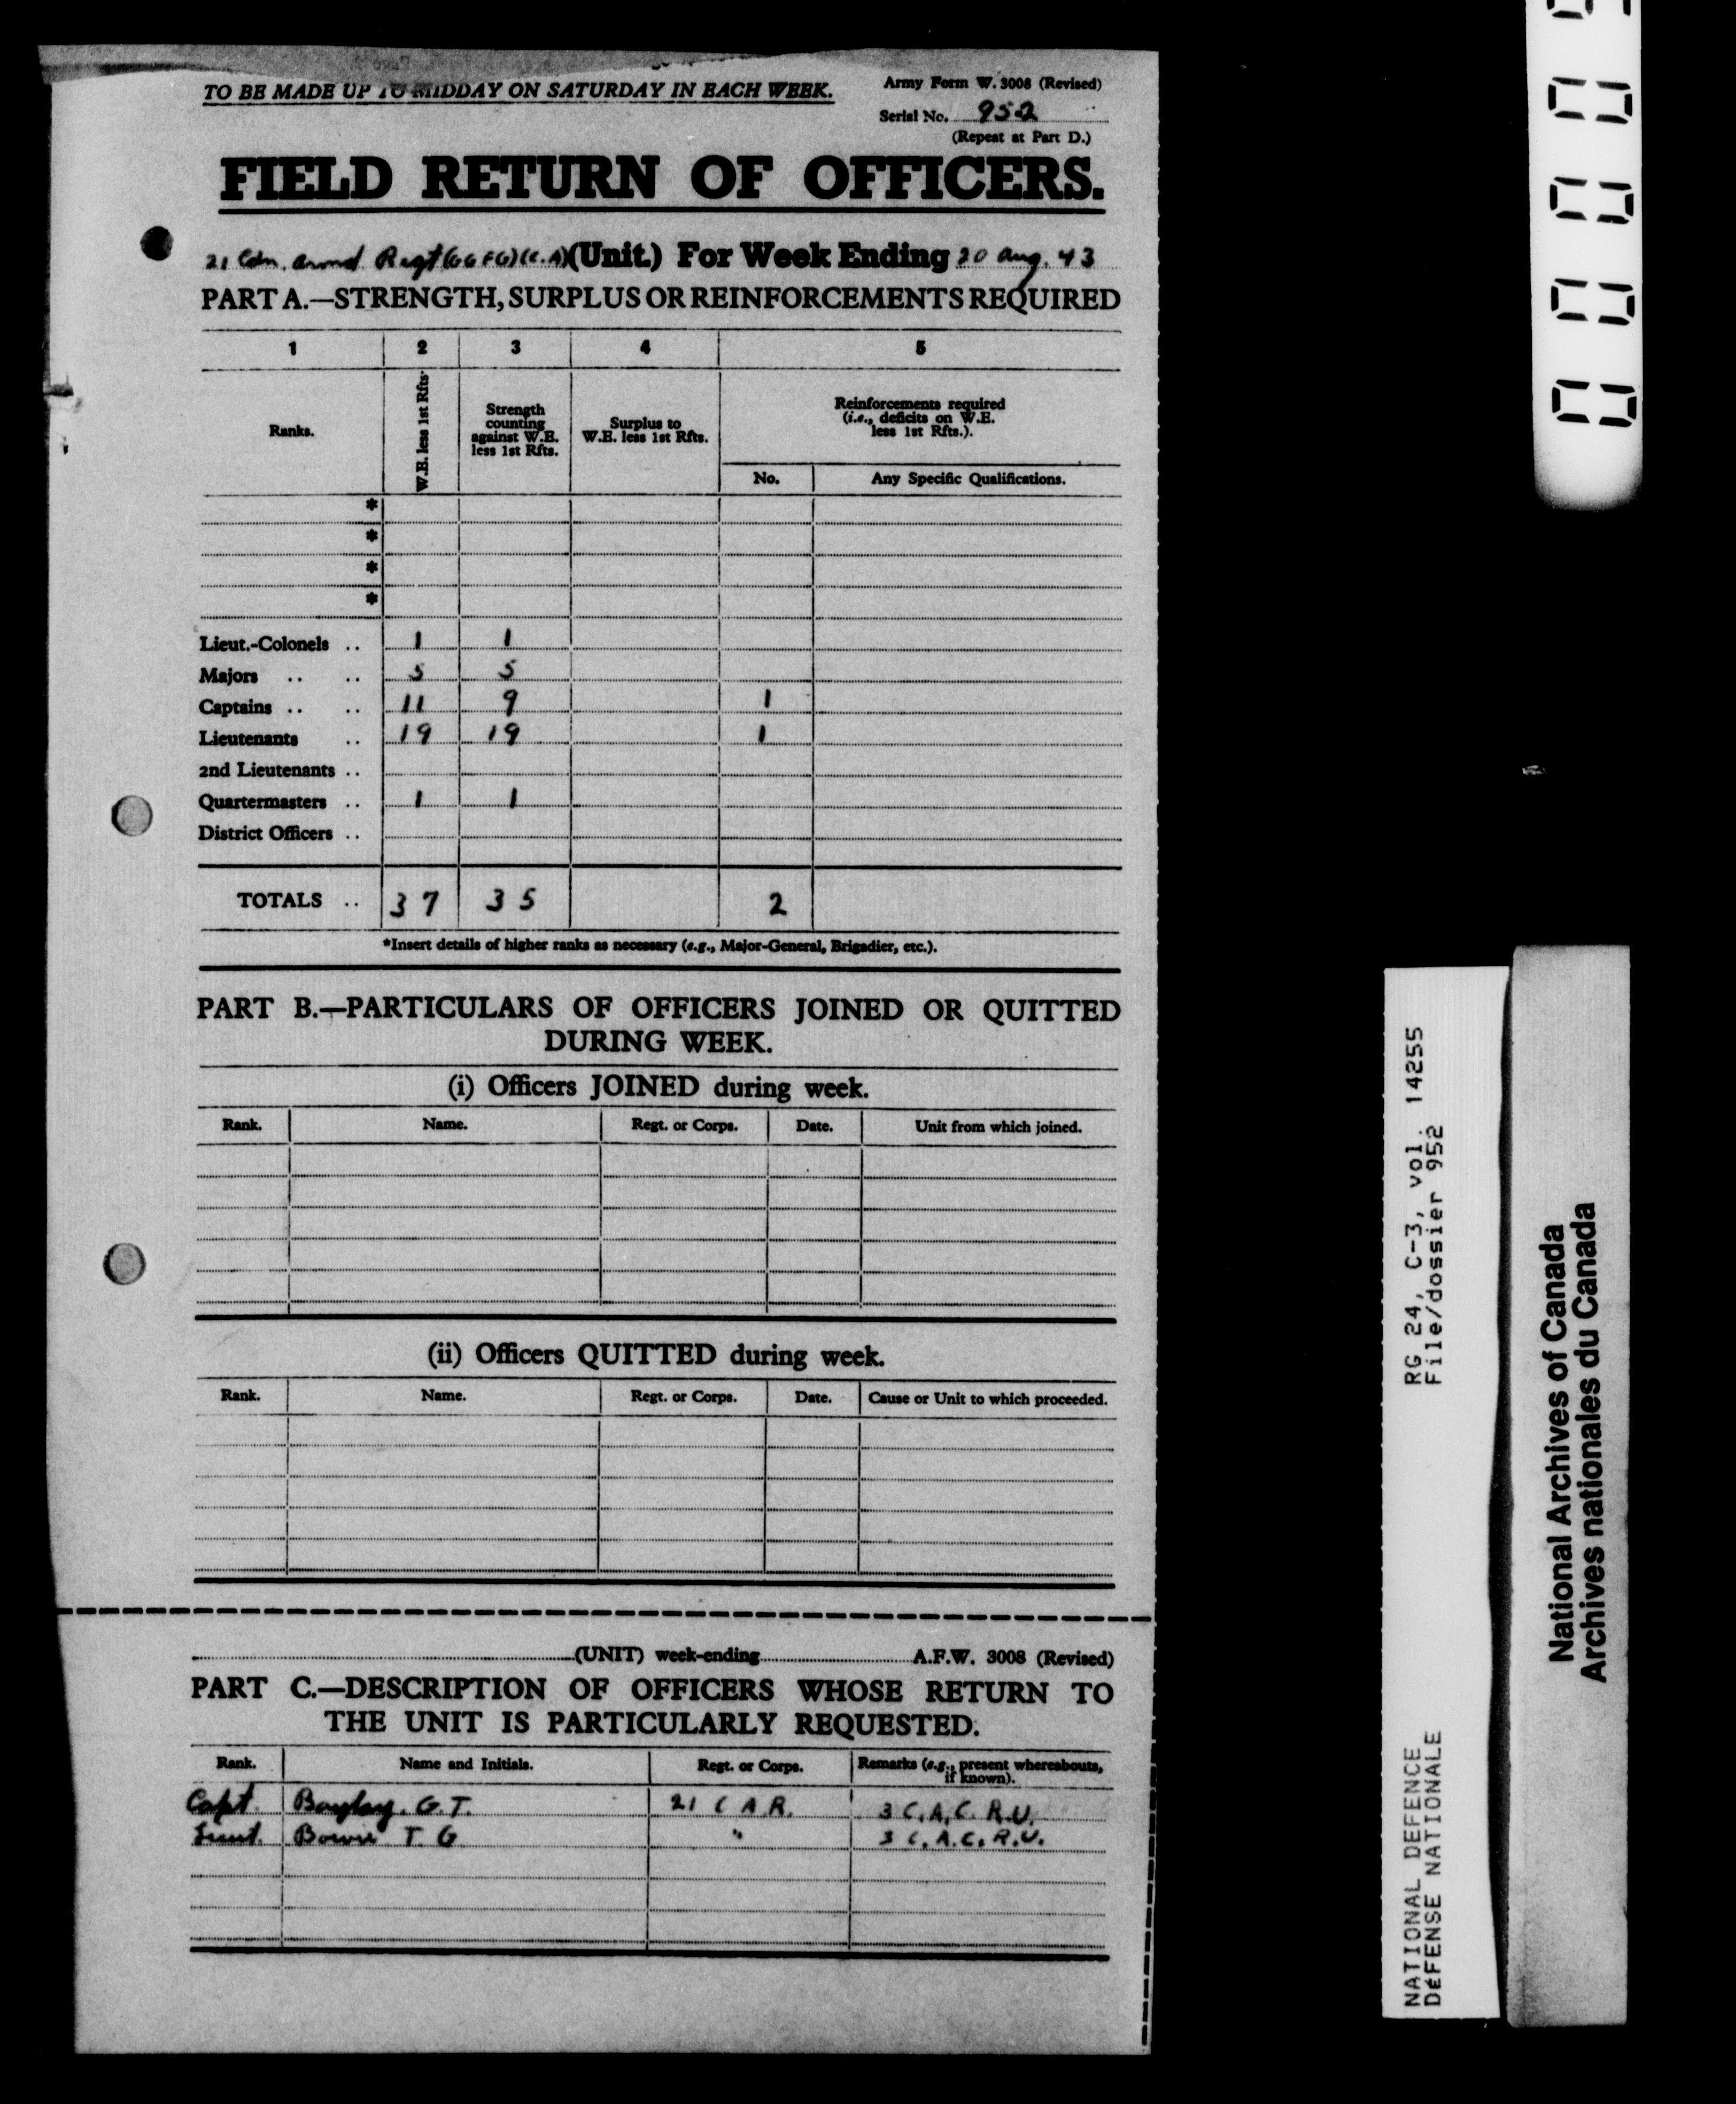 TO BE MADE UP TO MIDDAY ON SATURDAY IN EACH WEEK.
Army Form W. 3008 (Revised)
Serial No. 952
(Repeat at Part D.)
FIELD RETURN OF OFFICERS.
21 Cdn. Armd Regt (GGFG) (C.A) (Unit.) For Week Ending 20 Aug. 43
PART A.—STRENGTH, SURPLUS OR REINFORCEMENTS REQUIRED
1 2 3 4 5
Ranks.
W.E. less 1st Rfts.
Strength counting against W.E. less 1st Rfts.
Surplus to W.E. less 1st Rfts.
Reinforcements required (i.e., deficits on W.E. less 1st Rfts.).
No. Any Specific Qualifications.
*
*
*
*
Lieut.-Colonels .. 1 1
Majors .. .. 5 5
Captains .. .. 11 9 1
Lieutenants .. 19 19 1
2nd Lieutenants ..
Quartermasters .. 1 1
District Officers ..
TOTALS .. 37 35 2
*Insert details of higher ranks as necessary (e.g., Major-General, Brigadier, etc.).
PART B.—PARTICULARS OF OFFICERS JOINED OR QUITTED
DURING WEEK.
(i) Officers JOINED during week.
Rank. Name. Regt. or Corps. Date. Unit from which joined.
(ii) Officers QUITTED during week.
Rank. Name. Regt. or Corps. Date. Cause or Unit to which proceeded.
(UNIT) week-ending A.F.W. 3008 (Revised)
PART C.—DESCRIPTION OF OFFICERS WHOSE RETURN TO
THE UNIT IS PARTICULARLY REQUESTED.
Rank. Name and Initials. Regt. or Corps. Remarks (e.g., present whereabouts, if known).
Capt. G.T. 21 C A R. 3 C.A.C. R.U.
Lieut. Bowie T G " 3 C.A.C.R.U.
RG 24, C-3, vol. 14255
File/dossier 952
NATIONAL DEFENCE
DÉFENSE NATIONALE
National Archives of Canada
Archives nationales du Canada